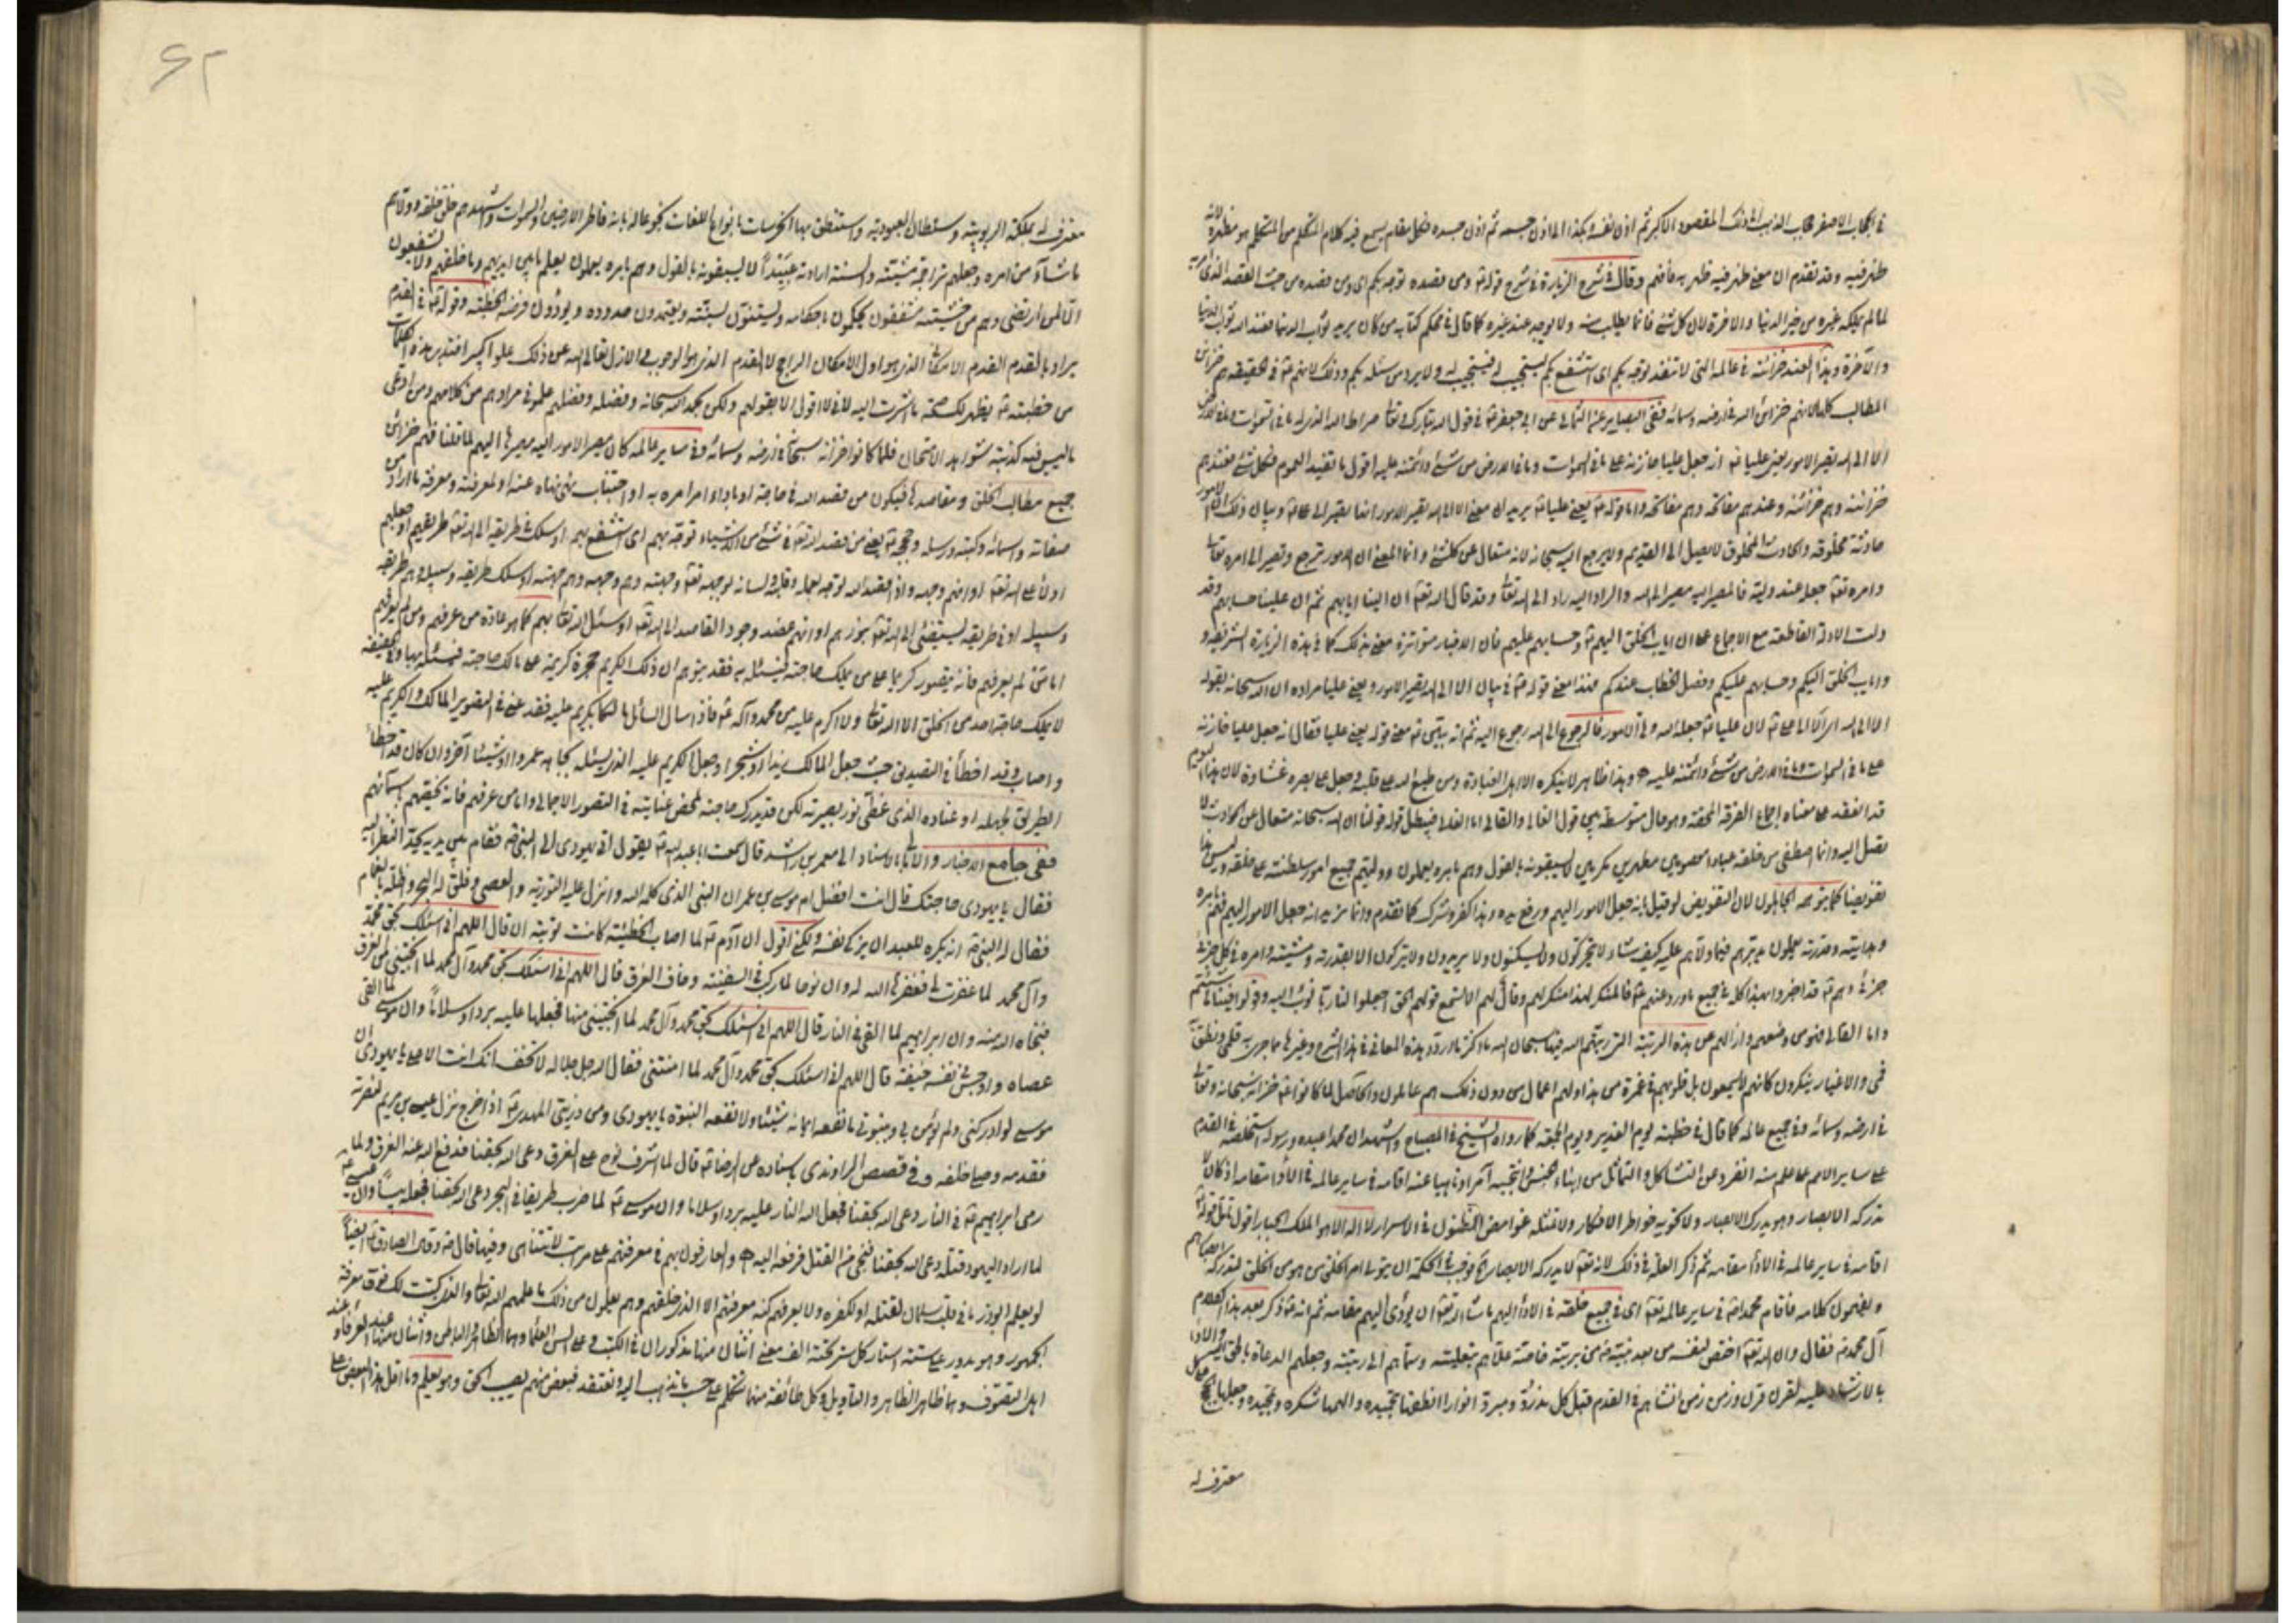 في الحجاب الاصغر حجاب الذهب الى ذلك المقصود الاكبر ثم اذن نفسه وبكذا الى اذن جسمه ثم اذن جسده فكل مقام يسمع فيه كلام المتكلم من المتكلم هو مظهره لانه
ظهر فيه وقد تقدم ان معنى ظهر فيه ظهر به فافهم وقال في شرح الزيارة في شرح قوله ع ومن قصده توجه بكم اي ومن قصده من حيث القصد الذي
لما لم يملكه غيره من خير الدنيا والاخرة لان كل شئ فانما يطلب منه ولا يوجد عند غيره كما قال في محكم كتابه من كان يريد ثواب الدنيا فعند الله ثواب الدنيا
والآخرة وهذا العند خزائنه في عالمه التي لا تنفد توجه بكم اي استشفع بكم ليستجيب لي فيستجيب له ولا يرد من سئله بكم وذلك لانهم ع في الحقيقة هم خزائن
المطالب كلها لانهم خزائن الله في ارضه وسمائه ففي البصاير عن الثمالي عن ابي جعفر ع في قول الله تبارك وتعالى صراط الله الذي له ما في السموات وما في الارض
الا الى الله تصير الامور يعني عليا ع انه جعل عليا خازنه على ما في السموات وما في الارض من شئ وائتمنه عليه اقول ما تفيد العموم فكل شئ فعندهم
خزائنه وهم خزائنه وعندهم مفاتحه وهم مفاتحه واما قوله ع يعني عليا ع يريد ان معنى الا الى الله تصير الامور انما تصير الى علي ع وبيان ذلك ان الامور
حادثة مخلوقه والحادث المخلوق لا يصل الى القديم ولا يرجع اليه سبحانه لانه متعال عن كل شئ وانما المعنى ان الامور ترجع وتصير الى امره تعالى
وامره تعالى جعله عند وليه فالمصير اليه مصير الى الله والراد اليه راد الى الله تعالى وقد قال الله تعالى ان الينا ايابهم ثم ان علينا حسابهم وقد
دلت الادلة القاطعة مع الاجماع على ان اياب الخلق اليهم ع وحسابهم عليهم فان الاخبار متواترة معنى بذلك كما في هذه الزيارة الشريفة و
واياب الخلق اليكم وحسابهم عليكم وفصل الخطاب عندكم فهذا معنى قوله ع في بيان الا الى الله تصير الامور ويعني عليا مراده ان الله سبحانه بقوله
الا الى الله اي الا الى علي ع لان عليا ع جعله الله ولي الامور فالرجوع الى الله رجوع اليه ثم انه بين ع معنى قوله يعني عليا فقال انه جعل عليا خازنه
على ما في السموات وما في الارض من شئ وائتمنه عليه وهذا ظاهر لا ينكره الا اهل الغباوة ومن طبع الله على قلبه وجعل على بصره غشاوة لان هذا
قد انعقد على معناه اجماع الفرقة المحقة وهو حال متوسطة بين قول الغالي والقالي اما الغالي فيبطل قوله قولنا ان الله سبحانه متعال عن الحوادث لا
تصل اليه وانما اصطفى من خلقه عبادا معصومين مطهرين مكرمين لا يسبقونه بالقول وهم بامره يعملون وولاهم جميع امور سلطنته على خلقه وليس هذا
تفويضا كما توهمه الجاهلون لان التفويض لو قيل بانه جعل الامور اليهم ورفع يده وهذا كفر وشرك كما تقدم وانما نريد انه جعل الامور اليهم فهم بامره
وهدايته وقدرته يعملون يدبرهم فيما ولاهم عليه كيف شاء لا يتحركون ولا يسكنون ولا يريدون ولا يتركون الا بقدرته ومشيته وامره في كل جزئي
جزئي وهم ع قد اخبروا بهذا كله في جميع ما ورد عنهم ع فالمنكر لهذا منكر لهم
واما القالي فهو من وضعهم وازالهم عن هذه الرتبة التي رتبهم الله فيها سبحان الله ما اكثر ما اردد هذه المعاني في هذا الشرح وغيرها مما جرى به قلمي ونطق به
فمي والاغيار ينكرون كانهم لا يسمعون بل قلوبهم في غمرة من هذا ولهم اعمال من دون ذلك هم عاملون والحاصل لما كانوا ع خزانه سبحانه وتعالى
في ارضه وسمائه وفي جميع عالمه كما قال في خطبته ليوم الغدير ويوم الجمعة كما رواه الشيخ في المصباح واشهد ان محمدا عبده ورسوله استخلصه في القدم
على ساير الامم على علم منه انفرد عن التشاكل والتماثل من ابناء الجنس وانتجبه آمرا وناهيا عنه اقامه في ساير عالمه في الاداء مقامه اذ كان لا
تدركه الابصار وهو يدرك الابصار ولا تحويه خواطر الافكار ولا تمثله غوامض الظنون في الاسرار لا اله الا هو الملك الجبار اقول تأمل قوله ع
اقامه في ساير عالمه في الاداء مقامه ثم ذكر العلة في ذلك لانه تعالى لا تدركه الابصار فوجب في الحكمة ان يتولى امر الخلق من هو من الخلق لتدركه ابصارهم
ويفهمون كلامه فاقام محمدا ص في ساير عالمه تعالى اي في جميع خلقه في الاداء اليهم ما شاء الله تعالى ان يؤدى اليهم مقامه ثم انه ع ذكر بعد هذا الكلام
آل محمد ص فقال وان الله تعالى اختص لنفسه من بعد نبيه ص من بريته خاصة علاهم بتعليته وسما بهم الى رتبته وجعلهم الدعاة بالحق اليه والادلاء
بالارشاد عليه لقرن قرن وزمن زمن انشاهم في القدم قبل كل مذروء ومبروء انوارا انطقها بتحميده والهمها شكره وتمجيده وجعلها الحجج على كل
معترف له
٦٢
معترف له بملكة الربوبية وسلطان العبودية واستنطق بها الخرسات بانواع اللغات بخوعا له بانه فاطر الارضين والسموات واشهدهم خلق خلقه وولاهم
ما شاء من امره وجعلهم تراجمة مشيته والسنة ارادته عبيدا لا يسبقونه بالقول وهم بامره يعملون يعلم ما بين ايديهم وما خلفهم ولا يشفعون
الا لمن ارتضى وهم من خشيته مشفقون يحكمون باحكامه ويستنون بسنته ويعتمدون حدوده ويؤدون فرضه الخطبة وقوله ع في القدم
يراد بالقدم القدم الامكاني الذي هو اول الامكان الراجح لا القدم الذي هو الوجوب والازل تعالى الله عن ذلك علوا كبيرا فتدبر هذه الكلمات
من خطبته ع يظهر لك صحة ما اشرت اليه لاني لا اقول الا بقولهم ولكن بحمد الله سبحانه وفضله وفضلهم علموني مرادهم من كلامهم ومن ادعى
ما ليس فيه كذبته شواهد الامتحان فلما كانوا خزانه سبحانه في ارضه وسمائه وفي ساير عالمه كان مصير الامور اليه مصيرها اليهم لما قلنا فهم خزائن
جميع مطالب الخلق ومقاصدها فيكون من قصد الله في حاجة او باداء امر امره به او اجتناب نهي نهاه عنه او لمعرفته ومعرفة ما اراد من
صفاته واسمائه وكتبه ورسله وحججه ع يعني من قصد الله تعالى في شئ من الاشياء توجه بهم اي استشفع بهم او سلك في طريقه الى الله تعالى طريقهم او جعلهم
ادلاء على الله تعالى او انهم وجهه واذا قصد الله توجه بعمله وقلبه ولسانه لوجهه تعالى وجهته وهم وجهه وهم جهته او سلك طريقه وسبيله وهم طريقه
وسبيله او في طريقه ليستضئ الى الله تعالى بنورهم او انهم عضد وجود القاصد الى الله تعالى او سئل الله تعالى بهم كما هو عادة من عرفهم ومن لم يعرفهم
اما من لم يعرفهم فانه يتصور كريما على من يملك حاجته ليسئله به فقد توهم ان ذلك الكريم حجرة كريمة على مالك حاجته فيسئله بها وفي الحقيقة
لا يملك حاجة احد من الخلق الا الله تعالى ولا اكرم عليه من محمد وآله ع فاذا سال السائل مالكها بكريم عليه فقد عنى في التصوير المالك والكريم عليه
واصاب وقد اخطأ في التصديق حيث جعل المالك زيدا او شجرا وجعل الكريم عليه الذي يسئله بجاهه عمروا او شيئا آخر وان كان قد اخطأ
الطريق لجهله او عناده الذي غطى نور بصيرته لكن قد يدرك حاجته لمحض عنايته في التصور الاجمالي واما من عرفهم فانه يخصهم باسمائهم
ففي جامع الاخبار والامالي بالاسناد الى معمر بن راشد قال سمعت ابا عبد الله ع يقول اتى يهودي الى النبي ص فقام بين يديه يحد النظر اليه
فقال يا يهودي ما حاجتك قال انت افضل ام موسى بن عمران النبي الذي كلمه الله وانزل عليه التورية والعصى وفلق له البحر واظله بالغمام
فقال له النبي ص انه يكره للعبد ان يزكي نفسه ولكني اقول ان آدم ع لما اصاب الخطيئة كانت توبته ان قال اللهم اني اسئلك بحق محمد
وآل محمد لما غفرت لي فغفرها الله له وان نوحا لما ركب في السفينة وخاف الغرق قال اللهم اني اسئلك بحق محمد وآل محمد لما انجيتني من الغرق
فنجاه الله منه وان ابراهيم لما القي في النار قال اللهم اني اسئلك بحق محمد وآل محمد لما انجيتني منها فجعلها عليه بردا وسلاما وان موسى لما القى
عصاه واوجس في نفسه خيفة قال اللهم اني اسئلك بحق محمد وآل محمد لما امنتني فقال الله جل جلاله لا تخف انك انت الاعلى يا يهودي ان
موسى لو ادركني ولم يؤمن بي وبنبوتي ما نفعه ايمانه شيئا ولا نفعته النبوة يا يهودي ومن ذريتي المهدي ع اذا خرج نزل عيسى بن مريم لنصرته
فقدمه وصلى خلفه وفي قصص الراوندي باسناده عن الرضا ع قال لما اشرف نوح على الغرق دعى الله بحقنا فدفع الله عنه الغرق ولما
رمى ابراهيم ع في النار دعى الله بحقنا فجعل الله النار عليه بردا وسلاما وان موسى ع لما ضرب طريقا في البحر دعى الله بحقنا فجعله يبسا وان عيسى ع
لما اراد اليهود قتله دعى الله بحقنا فنجي من القتل فرفعه اليه والعارفون بهم في معرفتهم على مراتب لا تتناهى وفيها قال ص وقال الصادق ع ايضا
لو يعلم ابوذر ما في قلب سلمان لقتله او لكفره ولا يعرفهم كنه معرفتهم الا الذي خلقهم وهم يعلمون من ذلك ما علمهم الله تعالى والذي كتبت لك فوق معرفة
الجمهور وهو يدور على ستة استار كل ستر تحته الف معنى اثنان منها مذكوران في الكتب وعلى السن العلماء وهما الظاهر والباطن واثنان منها عند العرفاء و عند
اهل التصوف وهما ظاهر الظاهر والتأويل وكل طائفة منها تتكلم على حسب ما تذهب اليه وتعتقد فبعض منهم يصيب الحق وهو يعلم وما اقل هذا البعض